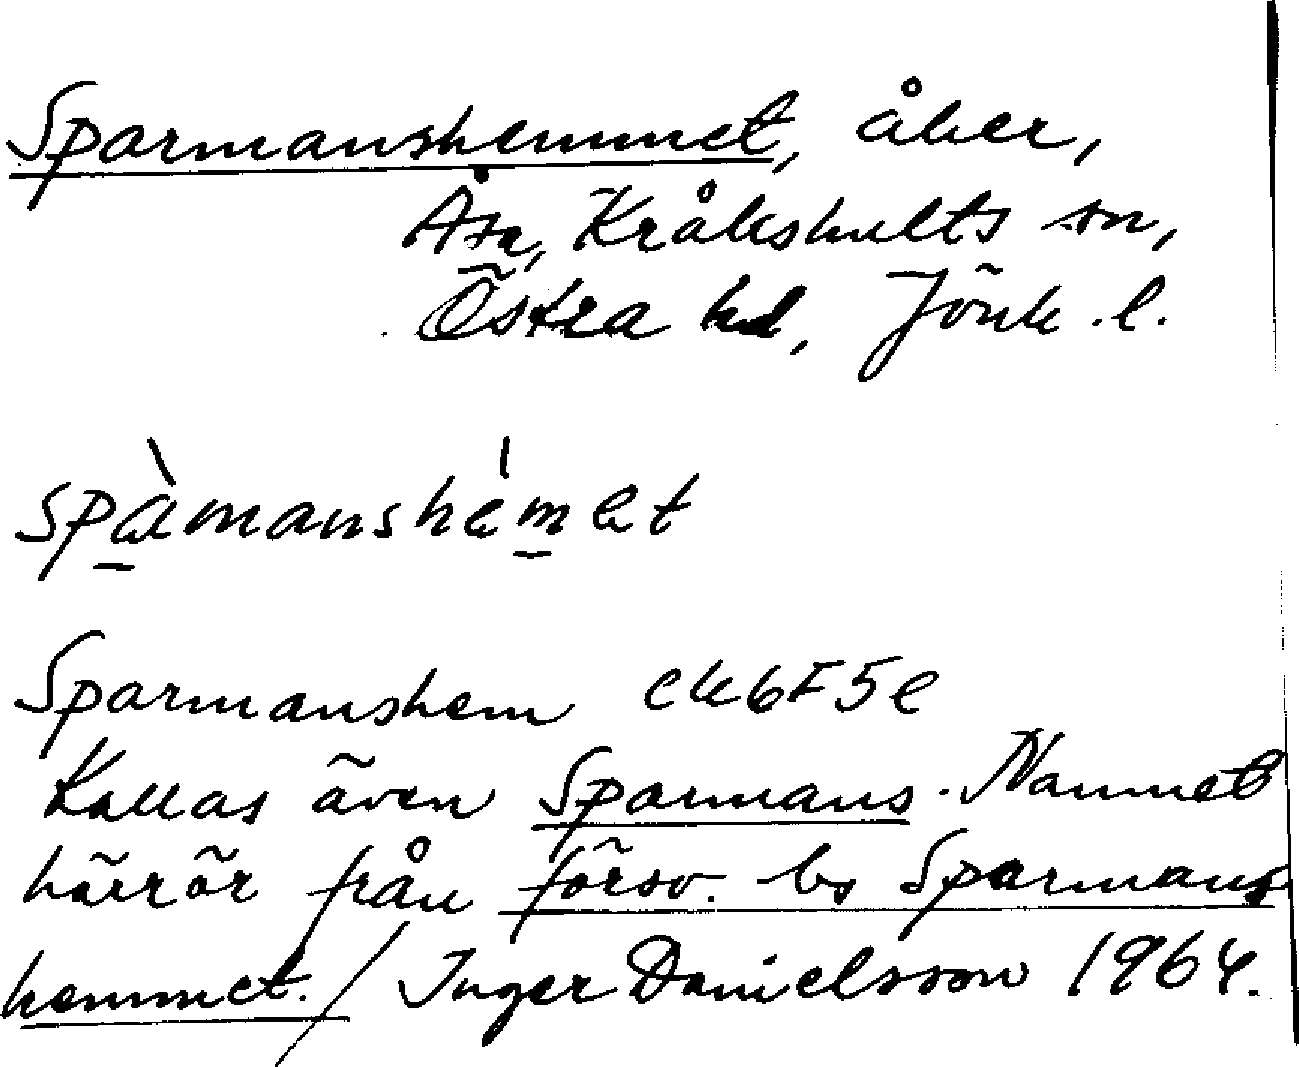 Sparmanshemmet, åker,
Åsa, Kråkshults sn,
Östra hd, Jönk. l.
spàmanshémet
Sparmanshem ek 6F5e
Kallas även Sparmans. Namnet
härrör från försv. bs Sparmans
hemmet. / Inger Danielsson 1964.